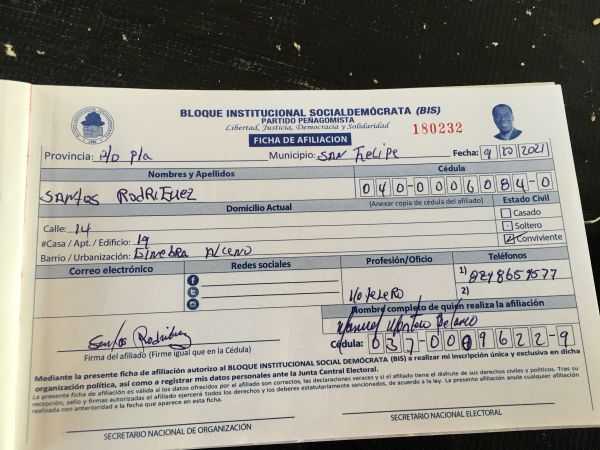 BLOQUE INSTITUCIONAL SOCIALDEMÓCRATA (BIS)
PARTIDO PEÑAGOMISTA
Libertad, Justicia, Democracia y Solidaridad
180232
FICHA DE AFILIACION
Provincia: P/O P/a Municipio: SAN FeLipe Fecha: 9 10 2021
Nombres y Apellidos Cédula
SANtos RodRiEuez 040-0006084-0
Domicilio Actual (Anexar copia de cédula del afiliado) Estado Civil
Calle: 14 Casado
#Casa / Apt. / Edificio: 19 Soltero
Barrio / Urbanización: GiNebra Conviviente
Correo electrónico Redes sociales Profesión/Oficio Teléfonos
1) 8298657577
2)
HoteLeRO
Nombre completo de quien realiza la afiliación
Manuel Montero
Santos Rodriguez Cédula: 037-0019622-9
Firma del afiliado (Firme igual que en la Cédula)
Mediante la presente ficha de afiliación autorizo al BLOQUE INSTITUCIONAL SOCIAL DEMÓCRATA (BIS) a realizar mi inscripción única y exclusiva en dicha
organización política, así como a registrar mis datos personales ante la Junta Central Electoral.
La presente ficha de afiliación es valida si los datos ofrecidos por el afiliado son correctos, las declaraciones veraces y si el afiliado tiene el disfrute de sus derechos civiles y políticos. Tras su
recepción, sello y firmas autorizadas el afiliado ejercerá todos los derechos y los deberes estatutariamente sancionados, de acuerdo a la ley. La presente afiliación anula cualquier afiliación
realizada con anterioridad a la fecha que aparece en esta ficha.
SECRETARIO NACIONAL DE ORGANIZACIÓN SECRETARIO NACIONAL ELECTORAL